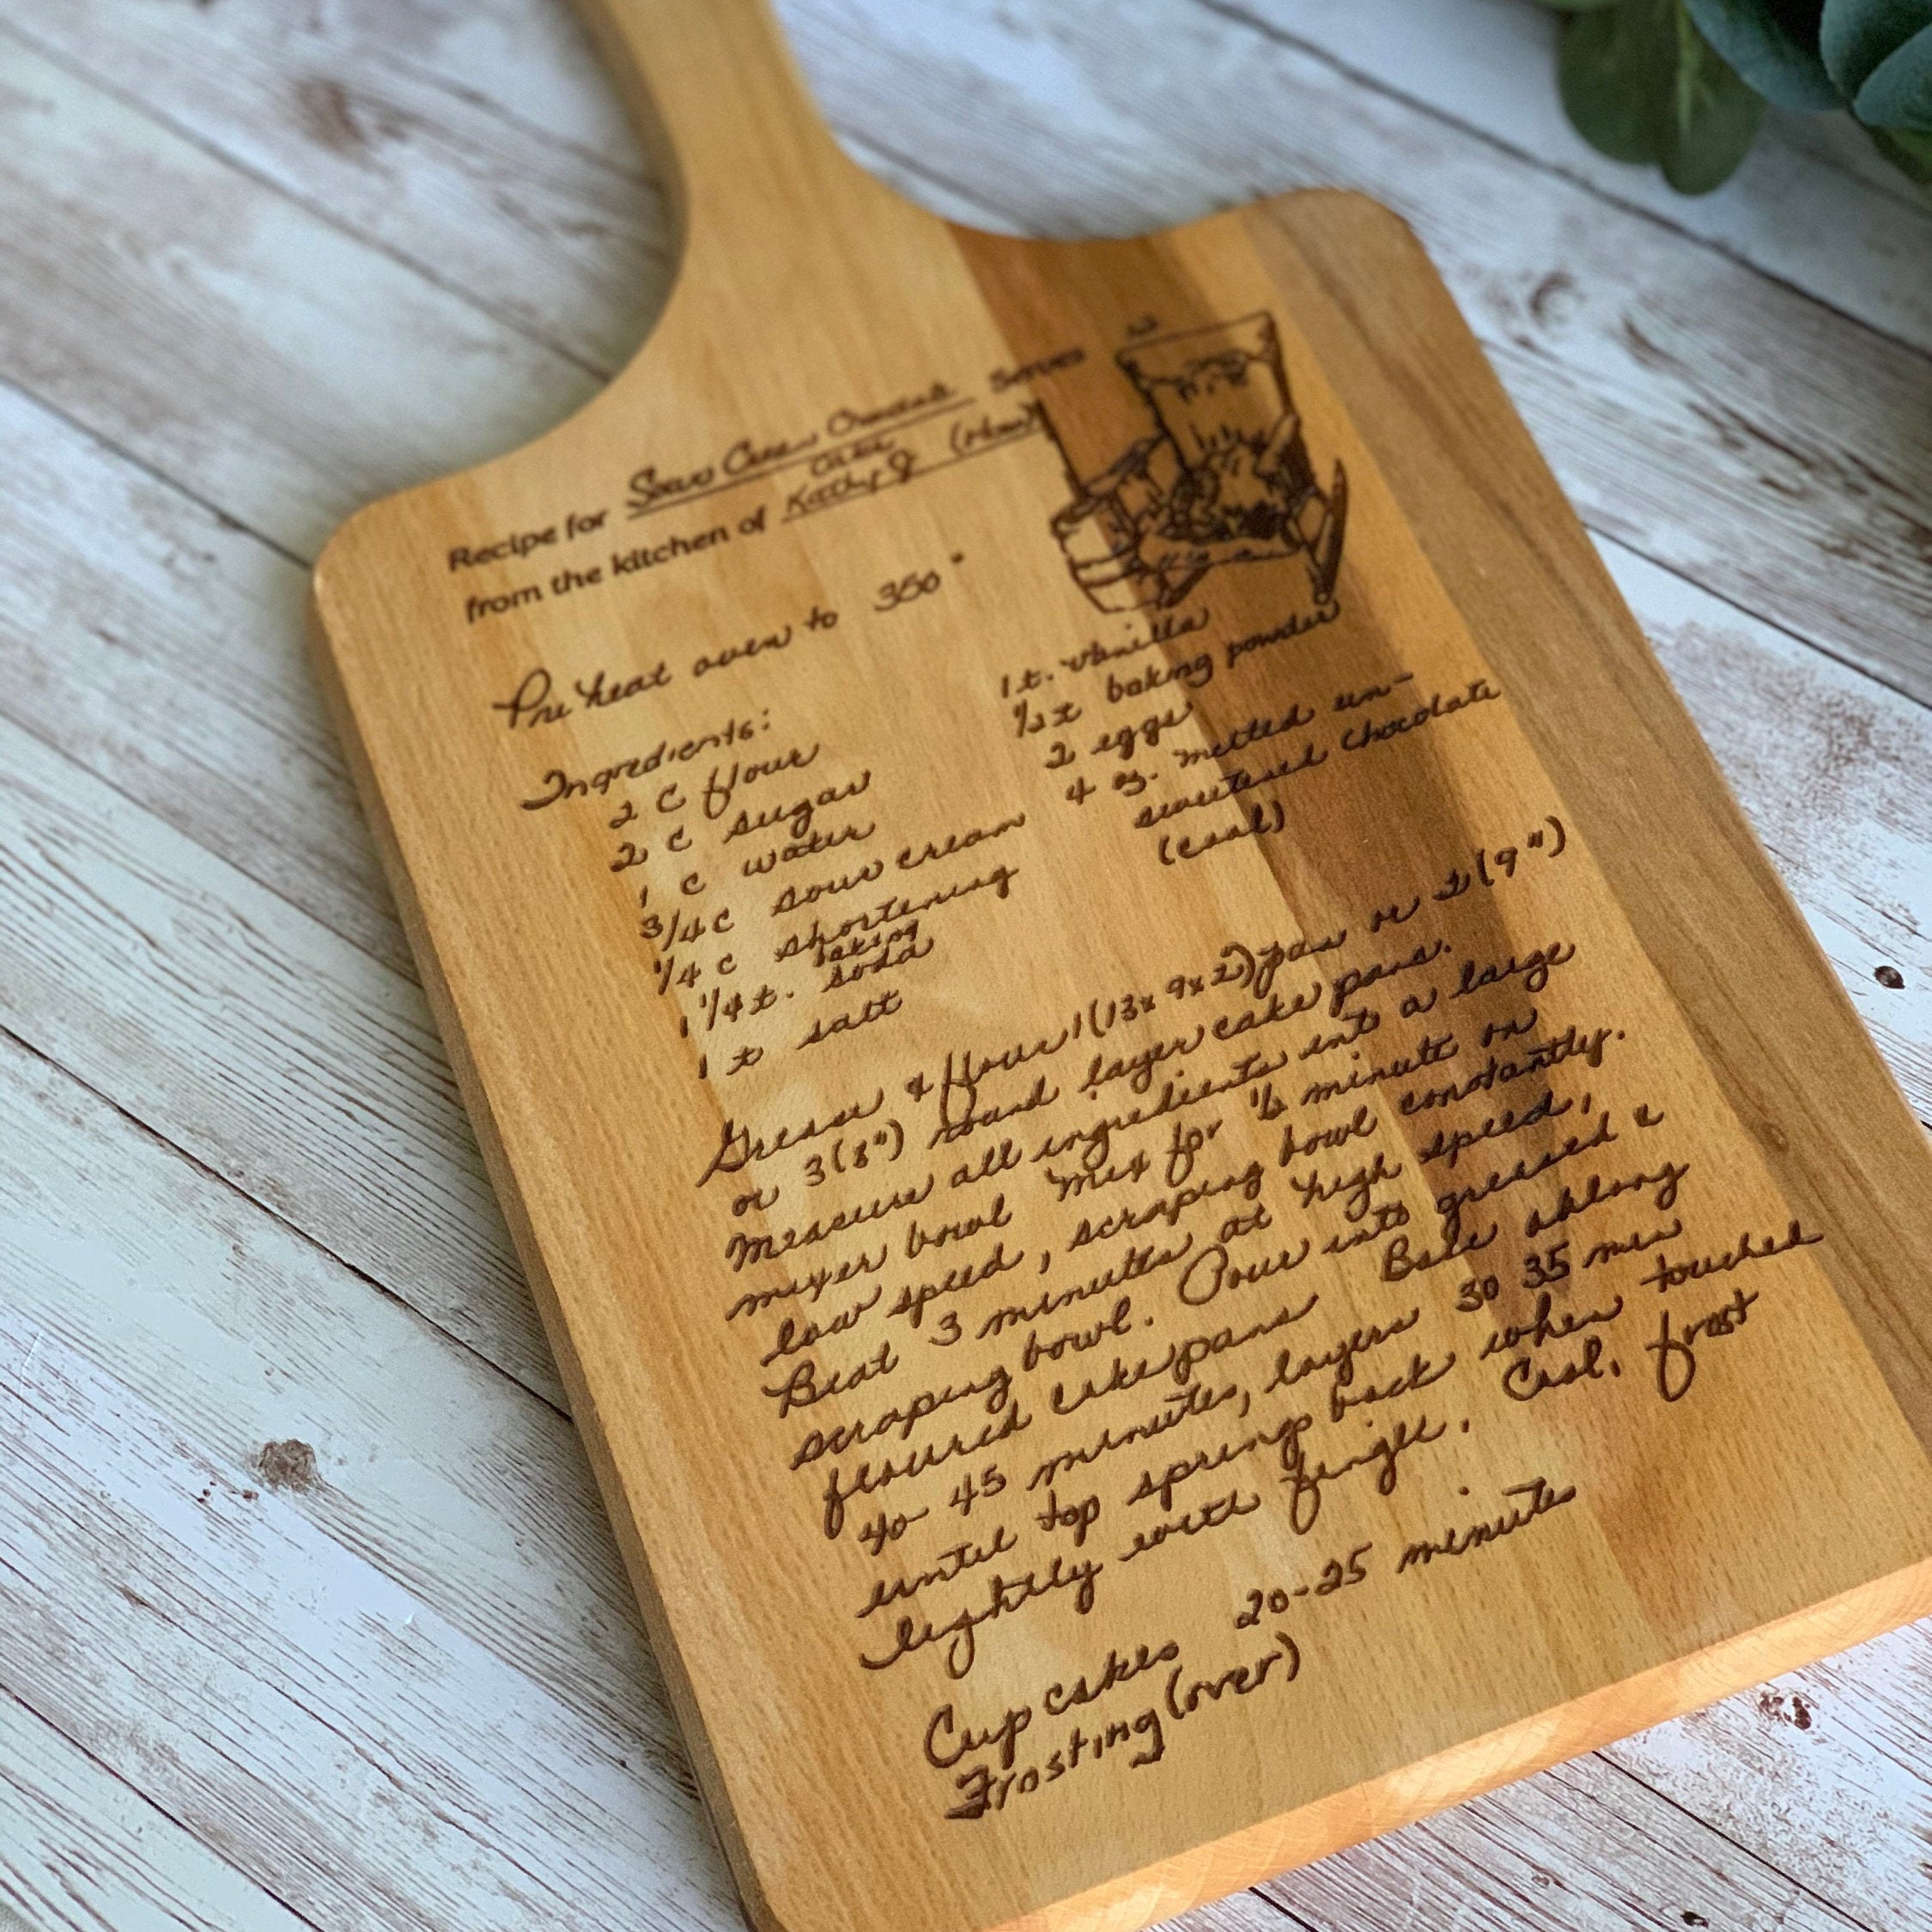 Recipe for Sour Cream Chocolate Serves
Cake
from the kitchen of Kathy J (Mom)
Pre heat oven to 350°
Ingredients:
2 C flour
2 C sugar
1 C water
3/4 C sour cream
1/4 C shortening
1 1/4 t. baking soda
1 t salt
1 t. vanilla
1/2 t baking powder
2 eggs
4 oz. melted un-
sweetened chocolate
(cool)
Grease & flour 1 (13x 9x 2) pan or 2 (9")
or 3 (8") round layer cake pans.
Measure all ingredients into a large
mixer bowl Mix for 1/2 minute on
low speed, scraping bowl constantly.
Beat 3 minutes at high speed,
scraping bowl. Pour into greased &
floured cake pans Bake oblong
40-45 minutes, layers 30 35 min
until top springs back when touched
lightly with finger. Cool, frost
Cup cakes 20-25 minutes
Frosting (over)